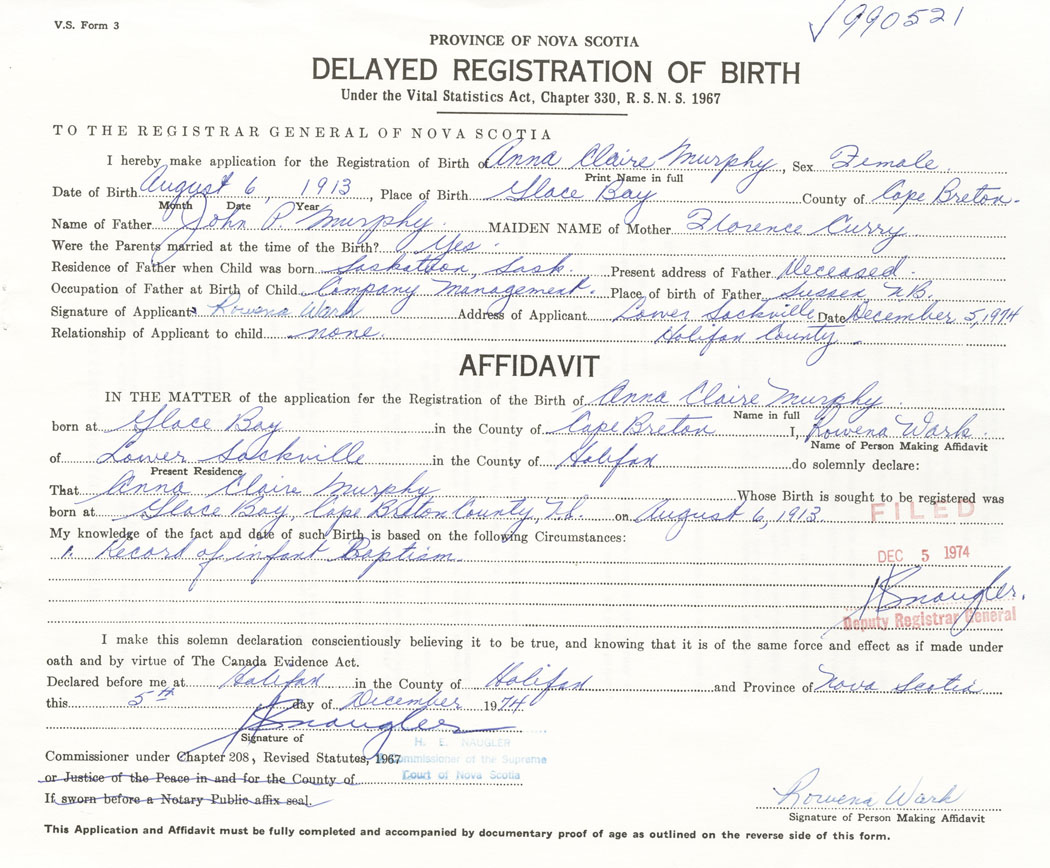 V.S. Form 3
√990521
PROVINCE OF NOVA SCOTIA
DELAYED REGISTRATION OF BIRTH
Under the Vital Statistics Act, Chapter 330, R.S.N.S. 1967
TO THE REGISTRAR GENERAL OF NOVA SCOTIA
I hereby make application for the Registration of Birth of Anna Claire Murphy, Sex Female
Print Name in full
Date of Birth August 6, 1913, Place of Birth Glace Bay County of Cape Breton.
Month Date Year
Name of Father John P. Murphy. MAIDEN NAME of Mother Florence Curry
Were the Parents married at the time of the Birth? Yes.
Residence of Father when Child was born Saskatoon, Sask. Present address of Father Deceased.
Occupation of Father at Birth of Child Company Management. Place of birth of Father Sussex, N.B.
Signature of Applicant Rowena Wark Address of Applicant Lower Sackville Date December 5, 1974
Relationship of Applicant to child none. Halifax County.
AFFIDAVIT
IN THE MATTER of the application for the Registration of the Birth of Anna Claire Murphy.
Name in full
born at Glace Bay in the County of Cape Breton I, Rowena Wark.
Name of Person Making Affidavit
of Lower Sackville in the County of Halifax do solemnly declare:
Present Residence
That Anna Claire Murphy Whose Birth is sought to be registered was
born at Glace Bay, Cape Breton County, N.S. on August 6, 1913
FILED
My knowledge of the fact and date of such Birth is based on the following Circumstances:
1. Record of infant Baptism.
DEC 5 1974
HENaugler.
Deputy Registrar General
I make this solemn declaration conscientiously believing it to be true, and knowing that it is of the same force and effect as if made under
oath and by virtue of The Canada Evidence Act.
Declared before me at Halifax in the County of Halifax and Province of Nova Scotia
this 5th day of December 1974
HENaugler
Signature of
H. E. NAUGLER
Commissioner under Chapter 208, Revised Statutes, 1967
Commissioner of the Supreme
Court of Nova Scotia
or Justice of the Peace in and for the County of
If sworn before a Notary Public affix seal.
Rowena Wark
Signature of Person Making Affidavit
This Application and Affidavit must be fully completed and accompanied by documentary proof of age as outlined on the reverse side of this form.